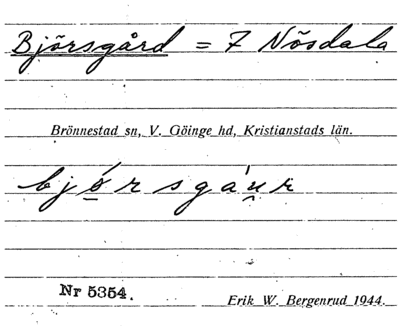 Björsgård = 7 Nösdala
Brönnestad sn, V. Göinge hd, Kristianstads län.
bjǿ̱rsgáu̯r
Nr 5354.
Erik W. Bergenrud 1944.